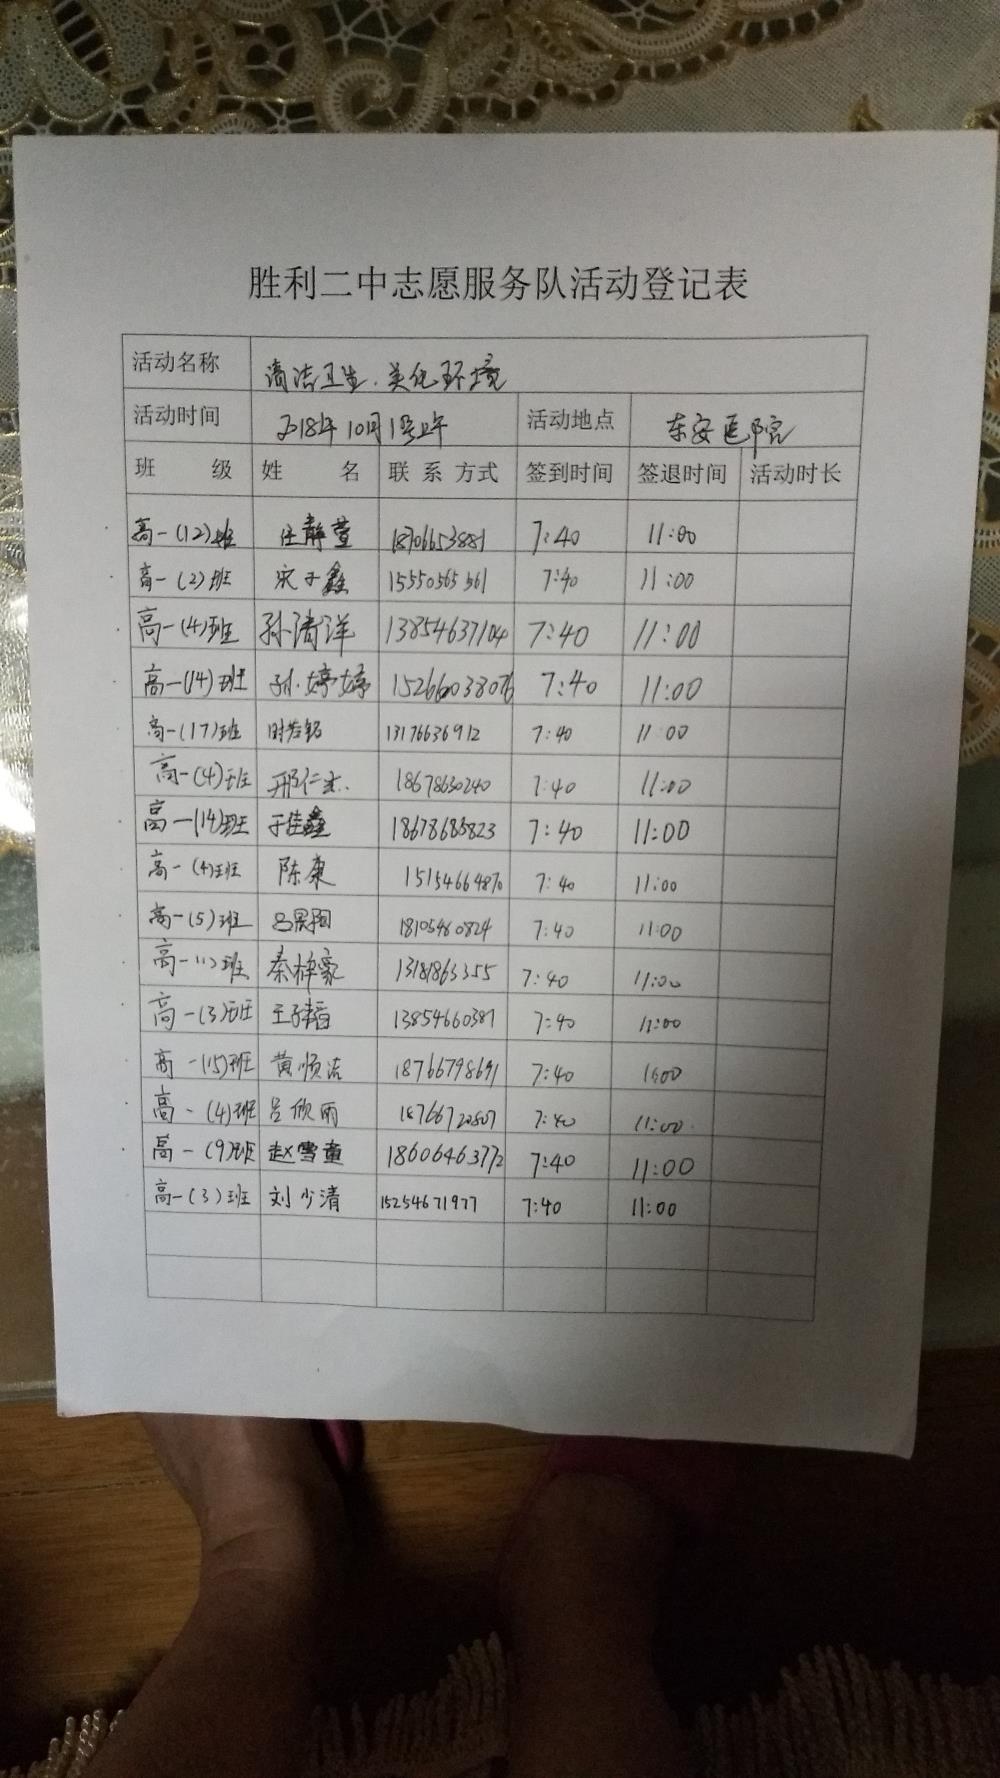 胜利二中志愿服务队活动登记表
活动名称 清洁卫生.美化环境
活动时间 2018年10月1号上午 活动地点 东安医院
班 级 姓 名 联系方式 签到时间 签退时间 活动时长
高一(12)班 任静萱 18706653881 7:40 11:00
高一(2)班 宋子鑫 15550565561 7:40 11:00
高一(4)班 孙清洋 13854637104 7:40 11:00
高一(14)班 孙婷婷 15266038076 7:40 11:00
高一(17)班 时若铭 13176636912 7:40 11:00
高一(4)班 邢仁杰 18678630240 7:40 11:00
高一(14)班 于佳鑫 18678685823 7:40 11:00
高一(4)班 陈康 15154664870 7:40 11:00
高一(5)班 吕昊阳 18105460824 7:40 11:00
高一(1)班 秦梓豪 13181863355 7:40 11:00
高一(3)班 王子韬 13854660381 7:40 11:00
高一(15)班 黄顺洁 18766798691 7:40 11:00
高一(4)班 吕欣雨 7:40 11:00
高一(9)班 赵雪童 18606463772 7:40 11:00
高一(3)班 刘少清 15254671977 7:40 11:00